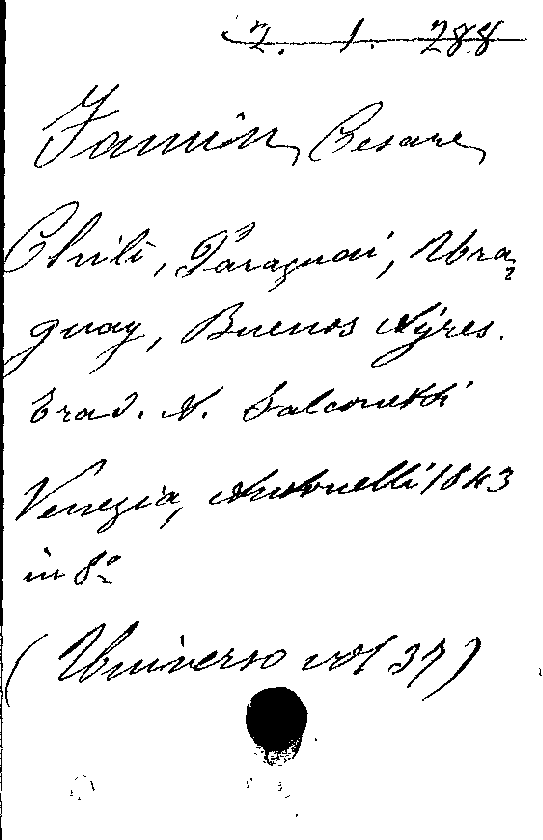 2. 1. 288
Famin, Cesare
Chili, Paraguai, Ura-
guay, Buenos Ayres.
Trad. A. Falconetti
Venezia, Antonelli 1843
in 8º
(Universo vol 37)